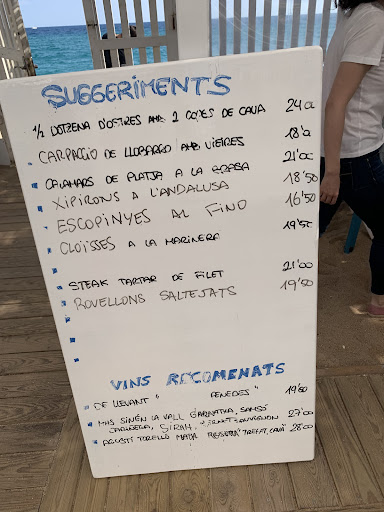 SUGGERIMENTS
1/2 DOTZENA D'OSTRES AMB 2 COPES DE CAVA 24'00
CARPACCIO DE LLOBARRO AMB VIEIRES 18'0
CALAMARS DE PLATJA A LA BRASA 21'00
XIPIRONS A L'ANDALUSA 18'50
ESCOPINYES AL FINO 16'50
CLOÏSSES A LA MARINERA 19'50
STEAK TARTAR DE FILET 21'00
ROVELLONS SALTEJATS 19'50
VINS RECOMENATS
DE LLEVANT " PENEDES" 19'50
MAS SINÉN LA VALL GARNATXA, SAMSÓ
CARIÑENA, SIRAH, CABERNET SAUVIGNON 27'00
AGUSTÍ TORELLÓ MATA CAVA 28'00